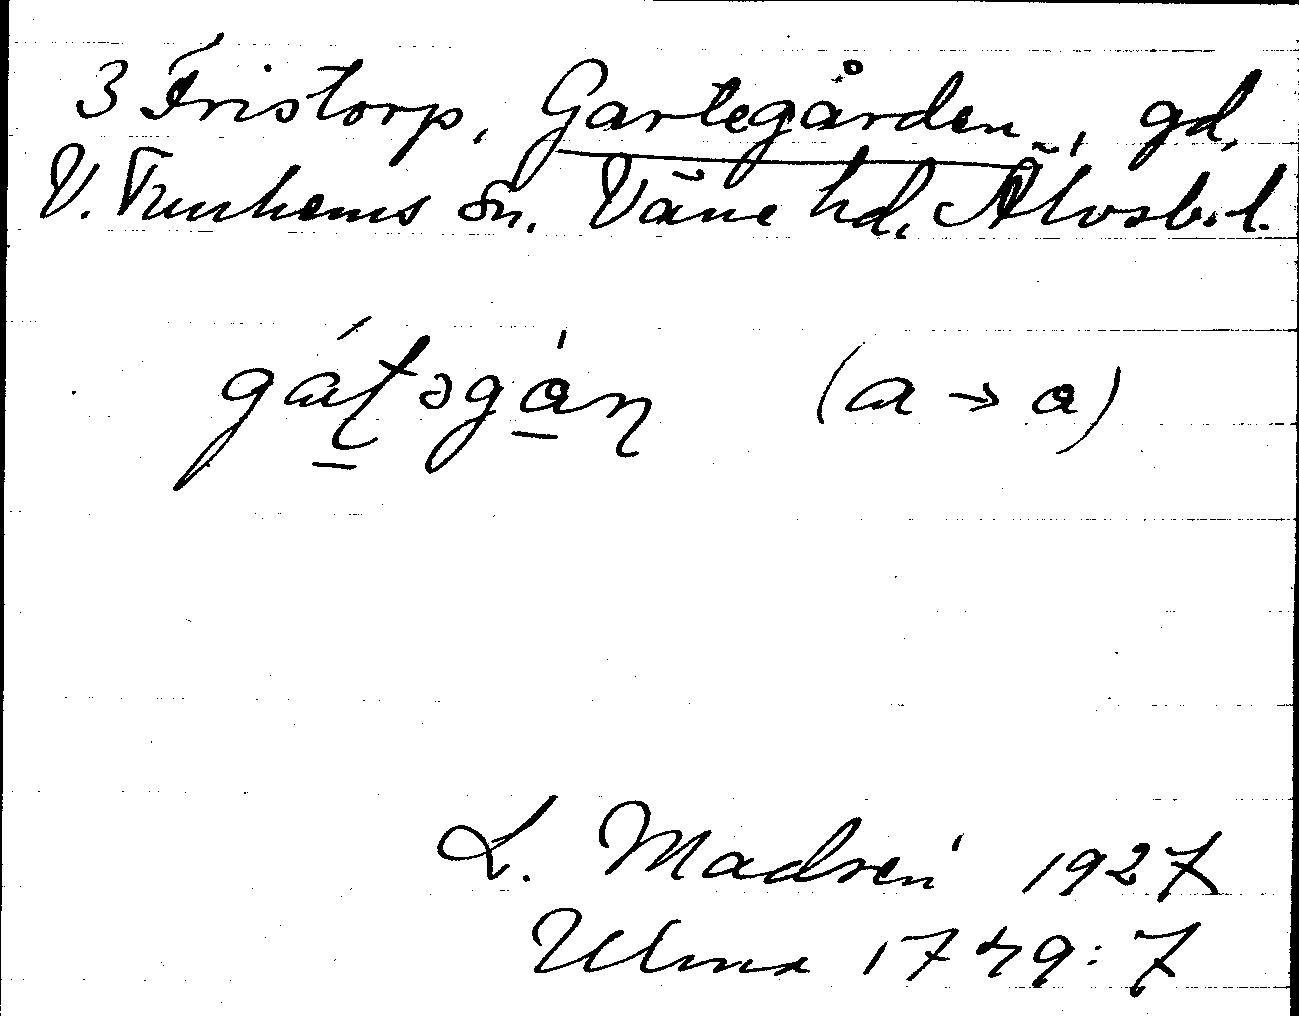 3 Fristorp, Gartegården, gd,
V. Tunhems sn. Väne hd, Älvsb. l.
gáʈəgán (a → a)
L. Madsén 1927
Ulma 1749:7